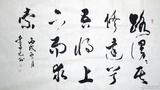 路漫漫其
修遠兮
吾將上
下而求
索